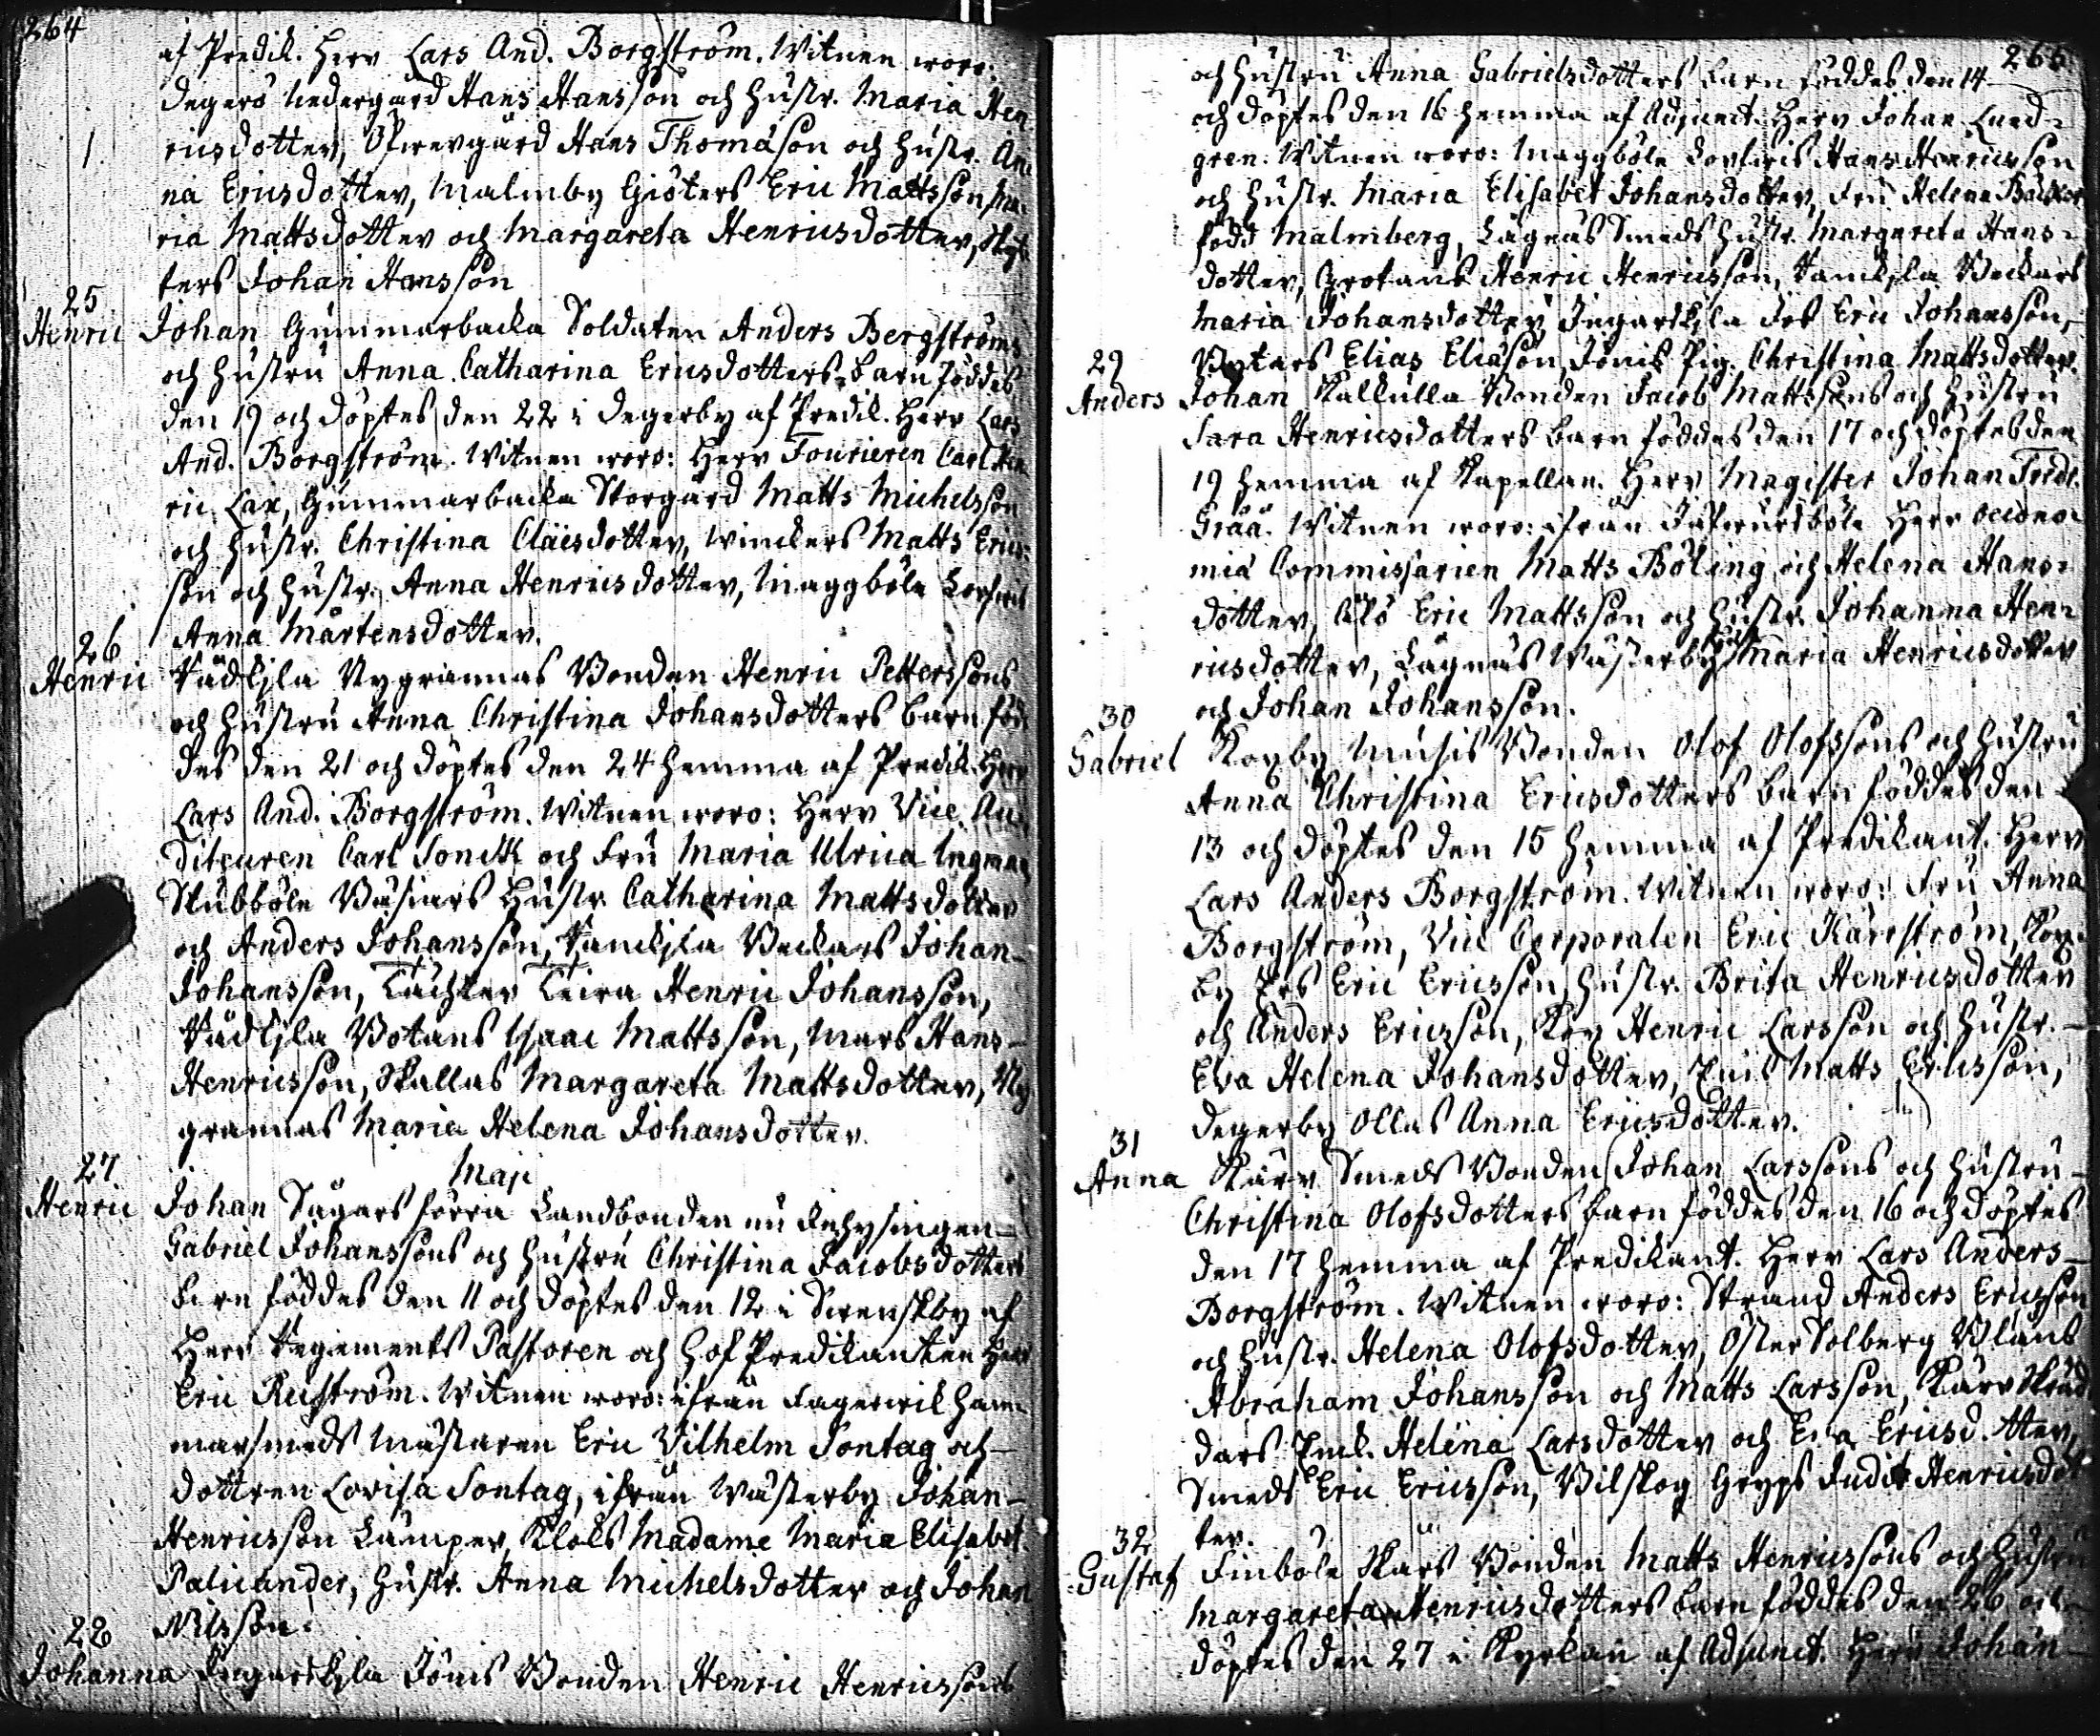 264
af Predik. Herr Lars And. Borgström. Witnen woro:
Degerö Nedergård Hans Hansson och hustr. Maria Hen
ricsdotter, Öfwergård Hans Thomason och hustr. An
na Ericsdotter, Malmby Giöters Eric Mattsson, Ma
ria Mattsdotter och Margareta Henricsdotter,
ters Johan Hansson
25
Henric Johan Gummarbacka Soldaten Anders Bergströms
och hustru Anna Catharina Ericsdotters barn föddes
den 19 och döptes den 22 i Degerby af Predik. Herr Lars
And. Borgström. Witnen woro: Herr Fourieren Carl Hen
ric Lax, Gummarbacka Storgård Matts Michelsson
och hustr. Christina Claesdotter, Winckers Matts Erics
son och hustr. Anna Henricsdotter, Maggböle
Anna Mårtensdotter.
26
Henric Rådkila Nygrannas Bonden Henric Petterssons
och hustru Anna Christina Johansdotters barn föd
des den 21 och döptes den 24 hemma af Predik. Herr
Lars And. Borgström. Witnen woro: Herr Vice Au
diteuren Carl Sonck och Fru Maria Ulrica Ingman
Skubböle Busiars Hustr. Catharina Mattsdotter
och Anders Johansson, Rankila Beckars Johan
Johansson, Lächter Keira Henric Johansson,
Rådkila Botans Isaac Mattsson, Mars Hans
Henricsson, Skallas Margareta Mattsdotter, Ny
grannas Maria Helena Johansdotter.
Maji
27
Henric Johan Sågars förra Landbonden nu Inhysingen
Gabriel Johanssons och hustru Christina Jacobsdotters
barn föddes den 11 och döptes den 12 i Swenskby af
Herr Regements Pastoren och Hof Predikanten Herr
Eric Ruström. Witnen woro: ifrån Fagerwik ham
marsmeds mästaren Eric Vilhelm Sontag och
dottren Lovisa Sontag, ifrån Wästerby Johan
Henricsson Lämper, Klots Madame Maria Elisabet
Palicander, hustr. Anna Michelsdotter och Johan
Nilsson.
28
Johanna Ingarskila Jönis Bonden Henric Henricssons
265
och hustru Anna Gabrielsdotters barn föddes den 14
och döptes den 16 hemma af Adjunct. Herr Johan Lund
gren. Witnen woro: Maggböle Hans Henricsson
och hustr. Maria Elisabet Johansdotter, Fru Helena
född Malmberg, Lågnäs Smeds hustr. Margareta Hans
dotter, Grotans Henric Henricsson, Rankila Beckars
Maria Johansdotter, Ingarskila Jos Eric Johansson,
Elias Eliasson, Jönis Pig. Christina Mattsdotter.
29
Anders Johan Kallkulla Bonden Jacob Mattssons och hustru
Sara Henricsdotters barn föddes den 17 och döptes den
19 hemma af Kapellan. Herr Magister Johan Fredr.
Gråå. Witnen woro: ifrån Herr Oecono
mie Commissarien Matts Böling och Helena Hans
dotter, Eric Mattsson och hustr. Johanna Hen
ricsdotter, Lågnäs Wästerby Maria Henricsdotter
och Johan Johansson.
30
Gabriel Koxby Musis Bonden Olof Olofssons och hustru
Anna Christina Ericsdotters barn föddes den
13 och döptes den 15 hemma af Predikant. Herr
Lars Anders Borgström. Witnen woro: Fru Anna
Borgström, Vice Corporalen Eric Kärrström, Kox
by Ers Eric Ericsson, hustr. Brita Henricsdotter
och Anders Ericsson, Kox Henric Larsson och hustr.
Eva Helena Johansdotter, Matts Ericsson,
Degerby Ollas Anna Ericsdotter.
31
Anna Kärr Smeds Bonden Johan Larssons och hustru
Christina Olofsdotters barn föddes den 16 och döptes
den 17 hemma af Predikant. Herr Lars Anders
Borgström. Witnen woro: Strand Anders Ericsson
och hustr. Helena Olofsdotter, Öster Solberg
Abraham Johansson och Matts Larsson, Kärr Skräd
dars Helena Larsdotter och Eva Ericsdotter,
Smeds Eric Ericsson, Bilskog Gryps Judit Henricsdot
ter.
32
Gustaf Finböle Skärs Bonden Matts Henricssons och hustru
Margareta Henricsdotters barn föddes den 26 och
döptes den 27 i Kyrkan af Adjunct. Herr Johan